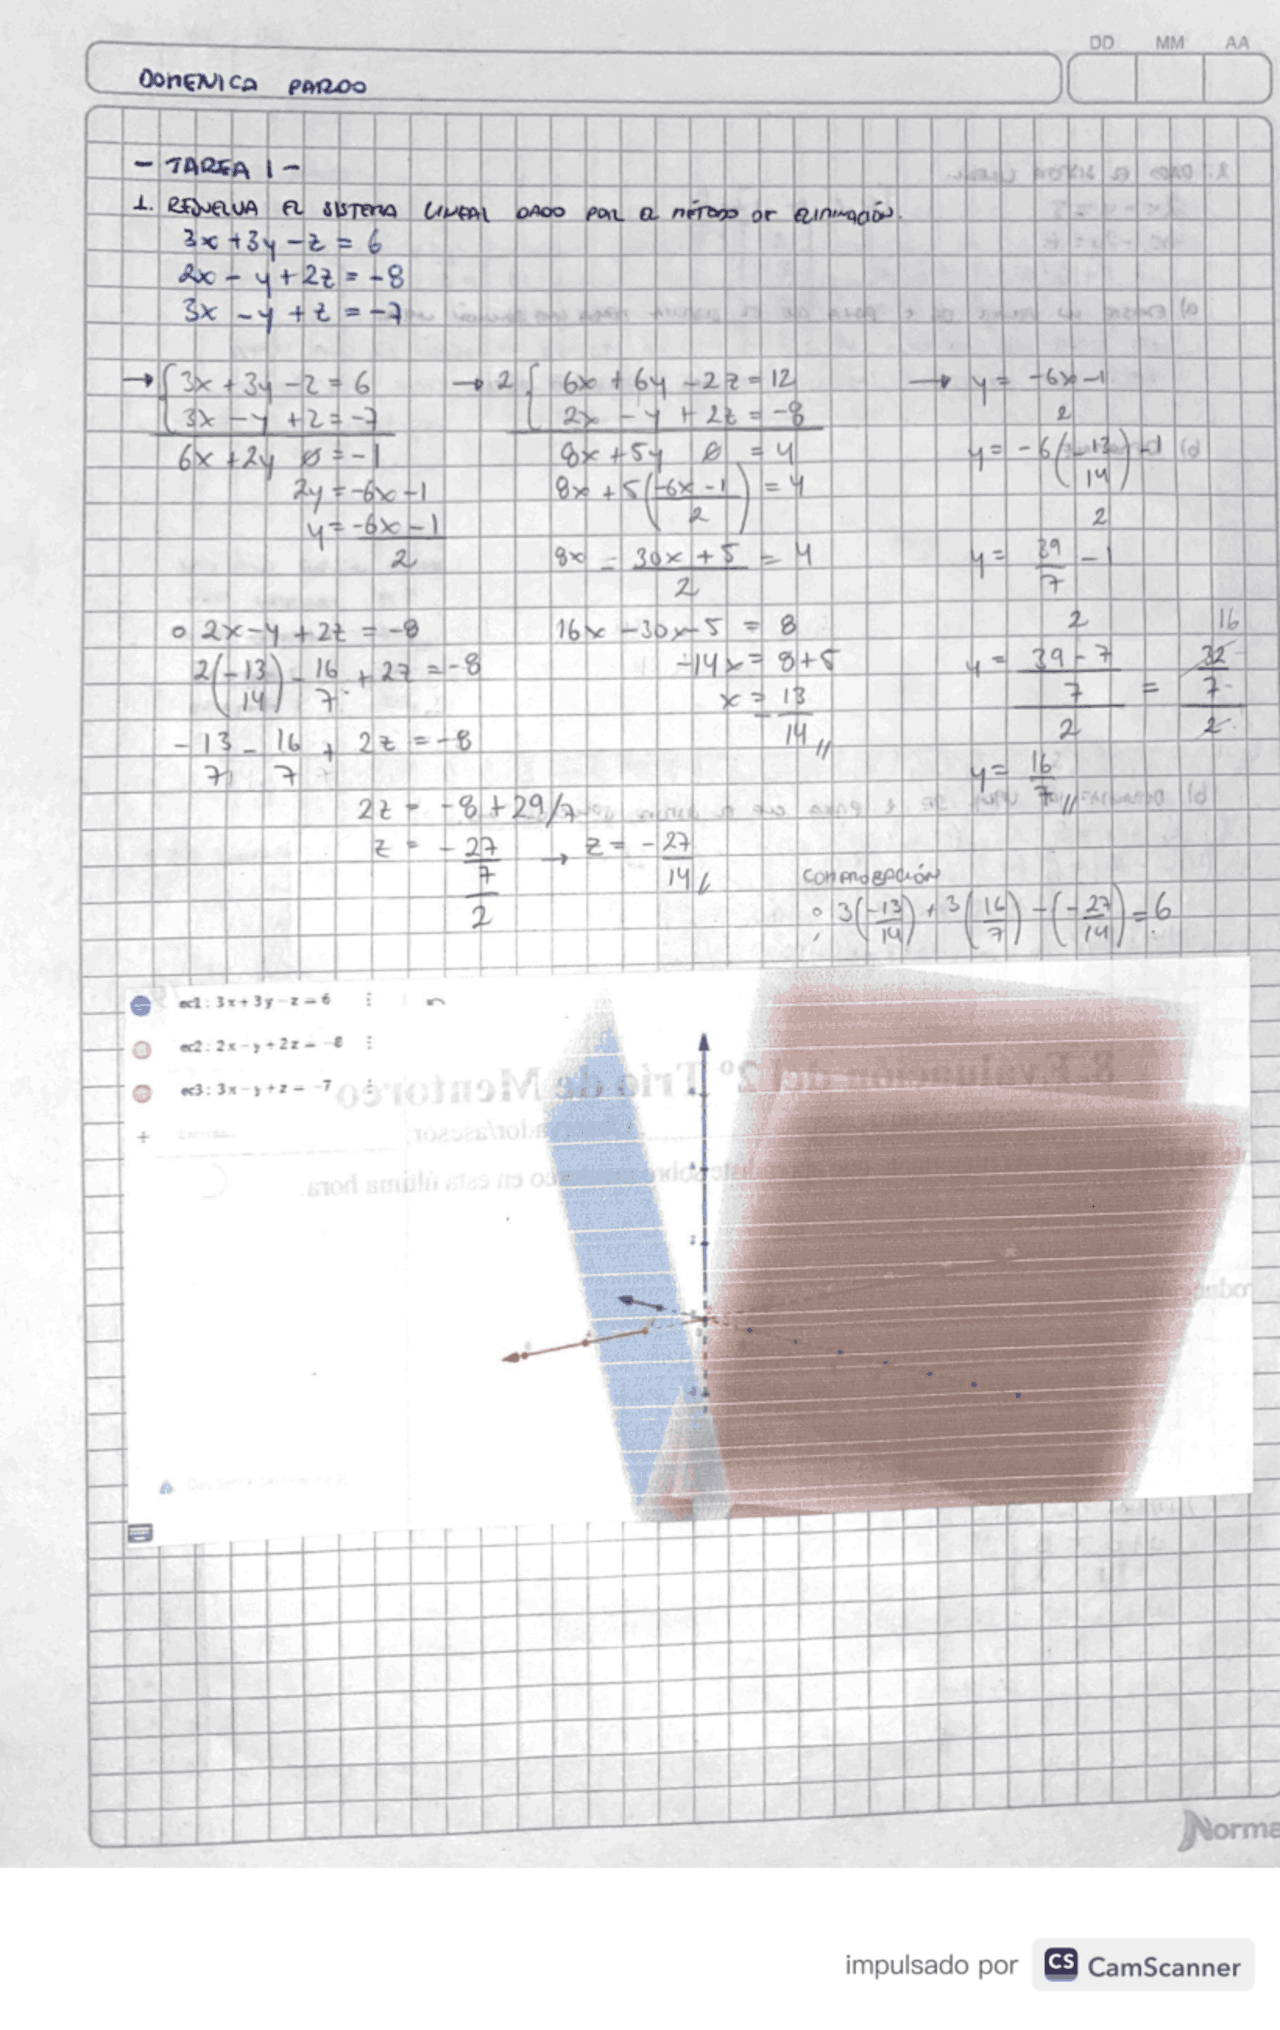 DD MM AA
DOMENICA PARDO
- TAREA 1 -
1. RESUELVA EL SISTEMA LINEAL DADO POR EL MÉTODO DE ELIMINACIÓN.
3x + 3y - z = 6
2x - y + 2z = -8
3x - y + z = -7
→ { 3x + 3y - z = 6
3x - y + z = -7
6x + 2y 0 = -1
2y = -6x - 1
y = -6x - 1 / 2
→ 2 { 6x + 6y - 2z = 12
2x - y + 2z = -8
8x + 5y 0 = 4
8x + 5 (-6x - 1 / 2) = 4
8x - 30x + 5 / 2 = 4
16x - 30x - 5 = 8
-14x = 8 + 5
x = - 13 / 14 //
→ y = -6x - 1 / 2
y = -6 (-13 / 14) - 1 / 2
y = 39 / 7 - 1 / 2
y = 39 - 7 / 7 / 2 = 16 32 / 7 / 2
y = 16 / 7 //
o 2x - y + 2z = -8
2 (-13 / 14) - 16 / 7 + 2z = -8
- 13 / 7 - 16 / 7 + 2z = -8
2z = -8 + 29/7
z = - 27 / 7 / 2 → z = - 27 / 14 //
COMPROBACIÓN
: 3 (-13 / 14) + 3 (16 / 7) - (-27 / 14) = 6
ec1 : 3x + 3y - z = 6
ec2 : 2x - y + 2z = -8
ec3 : 3x - y + z = -7
Norma
impulsado por CS CamScanner